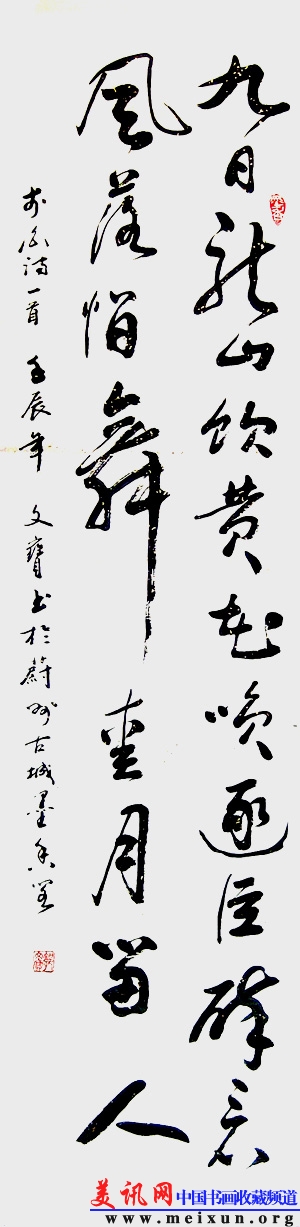 九日龙山饮黄花咲逐臣醉看
风落帽舞爱月留人
李白诗一首 壬辰年 文寶书於蔚州古城墨香阁
美讯网 中国书画收藏频道
www.meixun.org